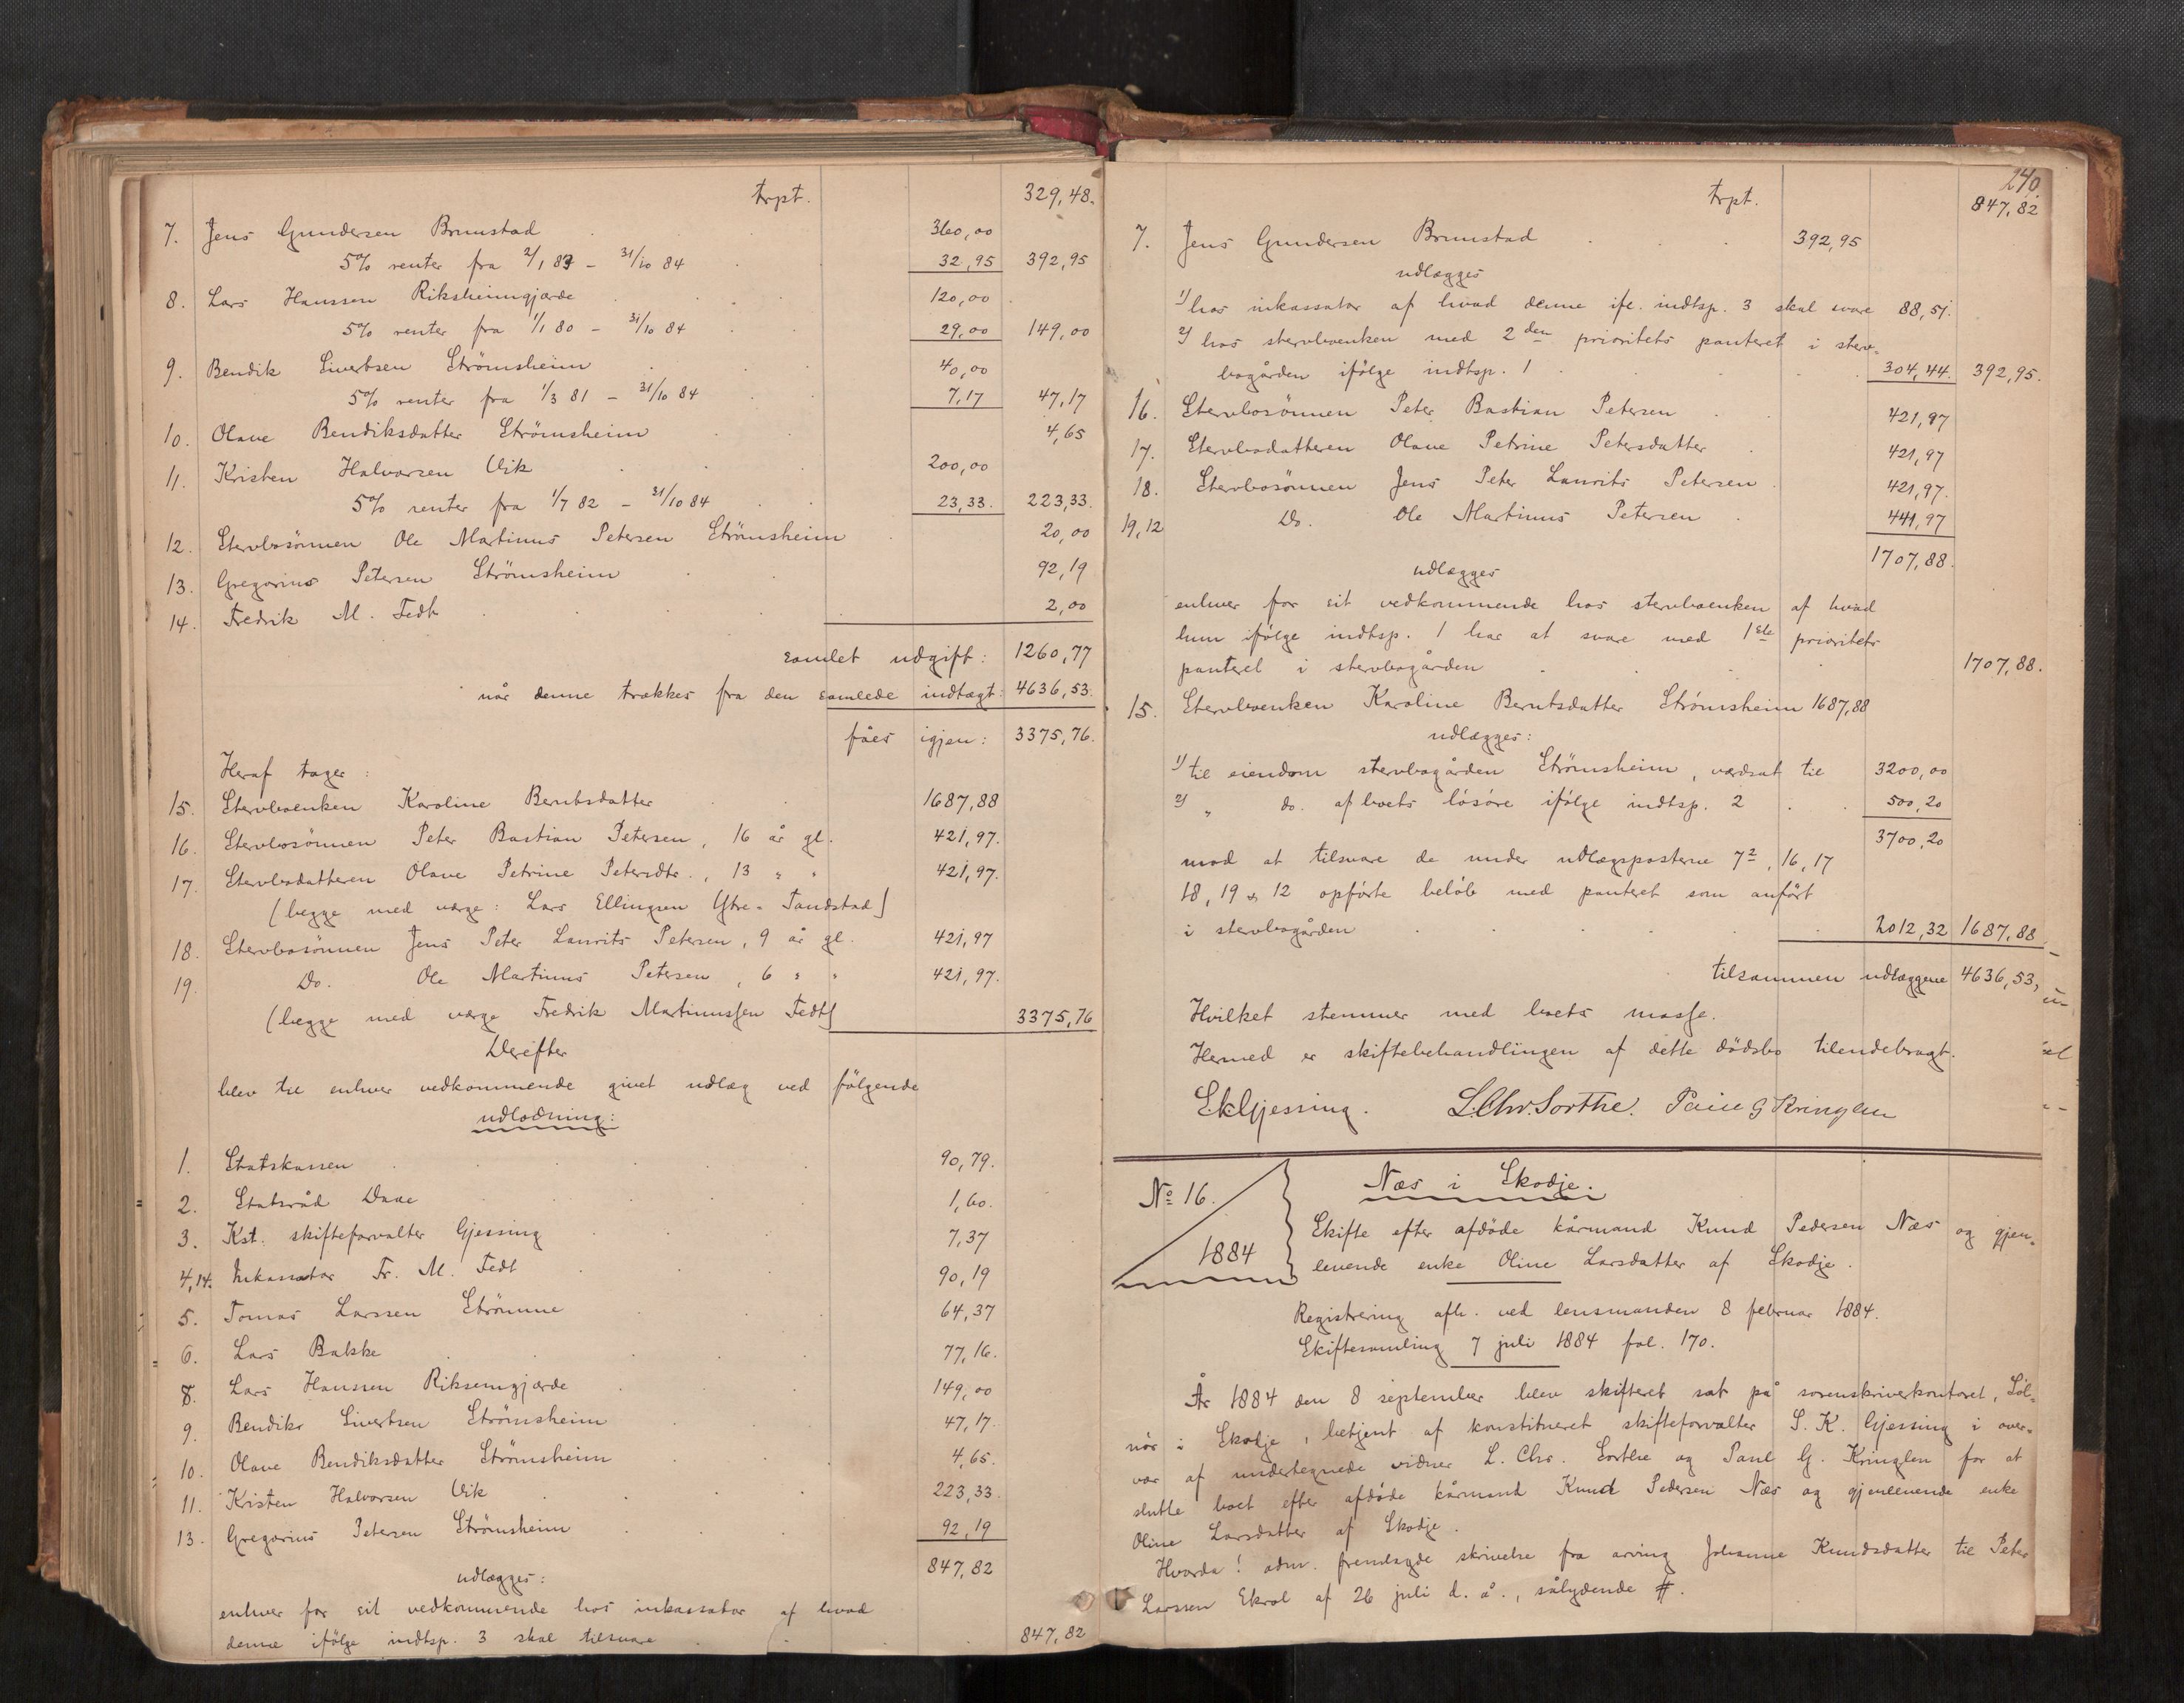 trpt. 329,48.
7. Jens Gundersen Brunstad 360,00
5% renter fra 2/1 83 - 31/10 84 32,95 392,95
8. Lars Hanssen Riksheimgjærde 120,00
5% renter fra 1/1 80 - 31/10 84 29,00 149,00
9. Bendik Sivertsen Strömsheim 40,00
5% renter fra 1/3 81 - 31/10 84 7,17 47,17
10. Olave Bendiksdatter Strömsheim 4,65
11. Kristen Halvorsen Vik 200,00
5% renter fra 1/7 82 - 31/10 84 23,33. 223,33.
12. Stervbosönnen Ole Martinus Petersen Strömsheim 20,00
13. Gregorius Petersen Strömsheim 92,19
14. Fredrik M. Fedt 2,00
samlet udgift: 1260,77
når denne trækkes fra den samlede indtægt: 4636,53.
fåes igjen: 3375,76.
Heraf tager:
15. Stervboenken Karoline Berntsdatter 1687,88
16. Stervbosönnen Peter Bastian Petersen, 16 år gl. 421,97.
17. Stervbodatteren Olave Petrine Petersdtr., 13 " " 421,97.
(begge med værge: Lars Ellingsen Ytre-Tandstad)
18. Stervbosönnen Jens Peter Laurits Petersen, 9 år gl. 421,97
19. Do. Ole Martinus Petersen, 6 " " 421,97.
(begge med værge Fredrik Martinussen Fedt) 3375,76
Derefter
blev til enhver vedkommende givet udlæg ved følgende
udlodning:
1. Statskassen 90,79.
2. Statsråd Daae 1,60.
3. Kst. skifteforvalter Gjessing 7,37
4,14. Inkassator Fr. M. Fedt 90,19
5. Tomas Larssen Strömme 64,37
6. Lars Bakke 77,16.
8. Lars Hanssen Riksemgjærde 149,00
9. Bendikr Sivertsen Strömsheim 47,17.
10. Olave Bendiksdatter Strömsheim 4,65.
11. Kristen Halvorsen Vik 223,33.
13. Gregorius Petersen Strömsheim 92,19
847,82
udlægges:
enhver for sit vedkommende hos inkassator af hvad
denne ifölge indtsp. 3 skal tilsvare 847,82
240
trpt. 847,82
7. Jens Gundersen Brunstad 392,95
udlægges
1) hos inkassator af hvad denne ifl. indtsp. 3 skal svare 88,51.
2) hos stervboenken med 2den prioritets panteret i sterv-
bogården ifölge indtsp. 1 304,44. 392,95.
16. Stervbosönnen Peter Bastian Petersen 421,97
17. Stervbodatteren Olave Petrine Petersdatter 421,97
18. Stervbosönnen Jens Peter Laurits Petersen 421,97.
19,12 Do. Ole Martinus Petersen 441,97
1707,88.
udlægges
enhver for sit vedkommende hos stervboenken af hvad
hun ifölge indtsp. 1 har at svare med 1ste prioritets
panteret i stervbogården 1707,88.
15. Stervboenken Karoline Berntsdatter Strömsheim 1687,88
udlægges:
1) til eiendom stervbogården Strömsheim, værdsat til 3200,00
2) " do. af boets lösöre ifölge indtsp. 2 500,20
3700,20
mod at tilsvare de under udlægsposterne 7², 16, 17
18, 19 & 12 opförte belöb med panteret som anfört
i stervbogården 2012,32 1687,88
tilsammen udlæggene 4636,53,
Hvilket stemmer med boets masse.
Hermed er skiftebehandlingen af dette dödsbo tilendebragt.
S.K.Gjessing. L.Chr.Sorthe. Paul G Kringlen
No 16.
1884
Næs i Skodje.
Skifte efter afdöde kårmand Knud Pedersen Næs og gjen-
levende enke Oline Larsdatter af Skodje.
Registrering afh. ved lensmanden 8 februar 1884.
Skiftesamling 7 juli 1884 fol. 170.
År 1884 den 8 september blev skifteret sat på sorenskriverkontoret, Söl-
nör i Skodje, betjent af konstitueret skifteforvalter S. K. Gjessing i over-
vær af undertegnede vidner L. Chr. Sorthe og Paul G. Kringlen for at
slutte boet efter afdöde kårmand Knud Pedersen Næs og gjenlevende enke
Oline Larsdatter af Skodje.
Hvorda! adm. fremlagde skrivelse fra arving Johanne Knudsdatter til Peter
Larssen Skrol af 26 juli d. å., sålydende #.